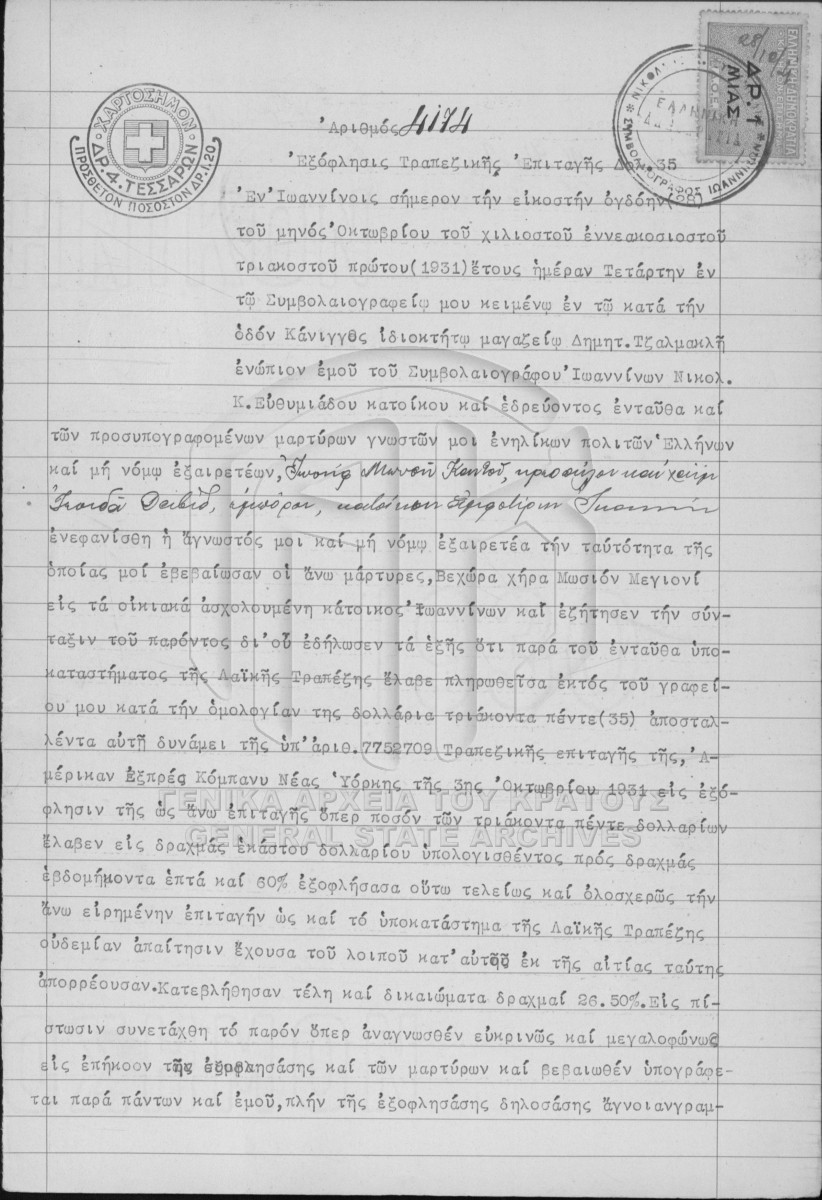 ΧΑΡΤΟΣΗΜΟΝ
ΔΡ. 4. ΤΕΣΣΑΡΩΝ
ΠΡΟΣΘΕΤΟΝ ΠΟΣΟΣΤΟΝ ΔΡ. 1.20
ΔΡ. 1
ΜΙΑΣ
Ἀριθμός 4174
Ἐξόφλησις Τραπεζικῆς Ἐπιταγῆς Δολ. 35
Ἐν Ἰωαννίνοις σήμερον τήν εἰκοστήν ὀγδόην (28)
τοῦ μηνός Ὀκτωβρίου τοῦ χιλιοστοῦ ἐννεακοσιοστοῦ
τριακοστοῦ πρώτου (1931) ἔτους ἡμέραν Τετάρτην ἐν
τῷ Συμβολαιογραφείῳ μου κειμένῳ ἐν τῷ κατά τήν
ὁδόν Κάνιγγος ἰδιοκτήτῳ μαγαζείῳ Δημητ. Τζαλμακλῆ
ἐνώπιον ἐμοῦ τοῦ Συμβολαιογράφου Ἰωαννίνων Νικολ.
Κ. Εὐθυμιάδου κατοίκου καί ἑδρεύοντος ἐνταῦθα καί
τῶν προσυπογραφομένων μαρτύρων γνωστῶν μοι ἐνηλίκων πολιτῶν Ἑλλήνων
καί μή νόμῳ ἐξαιρετέων, Ἰωσήφ Μωυσῆ
Δαβίδ, ἐμπόρου, κατοίκων ἀμφοτέρων
ἐνεφανίσθη ἡ ἄγνωστός μοι καί μή νόμῳ ἐξαιρετέα τήν ταὐτότητα τῆς
ὁποίας μοί ἐβεβαίωσαν οἱ ἄνω μάρτυρες, Βεχώρα χήρα Μωσιόν Μεγιονί
εἰς τά οἰκιακά ἀσχολουμένη κάτοικος Ἰωαννίνων καί ἐζήτησεν τήν σύν-
ταξιν τοῦ παρόντος δι' οὗ ἐδήλωσεν τά ἑξῆς ὅτι παρά τοῦ ἐνταῦθα ὑπο-
καταστήματος τῆς Λαϊκῆς Τραπέζης ἔλαβε πληρωθεῖσα ἐκτός τοῦ γραφεί-
ου μου κατά τήν ὁμολογίαν της δολλάρια τριάκοντα πέντε (35) ἀποσταλ-
λέντα αὐτῇ δυνάμει τῆς ὑπ' ἀριθ. 7752709 Τραπεζικῆς ἐπιταγῆς τῆς, Ἀ-
μέρικαν Ἐξπρές Κόμπανυ Νέας Ὑόρκης τῆς 3ης Ὀκτωβρίου 1931 εἰς ἐξό-
φλησιν τῆς ὡς ἄνω ἐπιταγῆς ὅπερ ποσόν τῶν τριάκοντα πέντε δολλαρίων
ἔλαβεν εἰς δραχμάς ἑκάστου δολλαρίου ὑπολογισθέντος πρός δραχμάς
ἑβδομήκοντα ἑπτά καί 60% ἐξοφλήσασα οὕτω τελείως καί ὁλοσχερῶς τήν
ἄνω εἰρημένην ἐπιταγήν ὡς καί τό ὑποκατάστημα τῆς Λαϊκῆς Τραπέζης
οὐδεμίαν ἀπαίτησιν ἔχουσα τοῦ λοιποῦ κατ' αὐτοῦ ἐκ τῆς αἰτίας ταύτης
ἀπορρέουσαν. Κατεβλήθησαν τέλη καί δικαιώματα δραχμαί 26.50%. Εἰς πί-
στωσιν συνετάχθη τό παρόν ὅπερ ἀναγνωσθέν εὐκρινῶς καί μεγαλοφώνως
εἰς ἐπήκοον τῆς ἐξοφλησάσης καί τῶν μαρτύρων καί βεβαιωθέν ὑπογράφε-
ται παρά πάντων καί ἐμοῦ, πλήν τῆς ἐξοφλησάσης δηλοσάσης ἄγνοιαν γραμ-
ΓΕΝΙΚΑ ΑΡΧΕΙΑ ΤΟΥ ΚΡΑΤΟΥΣ
GENERAL STATE ARCHIVES